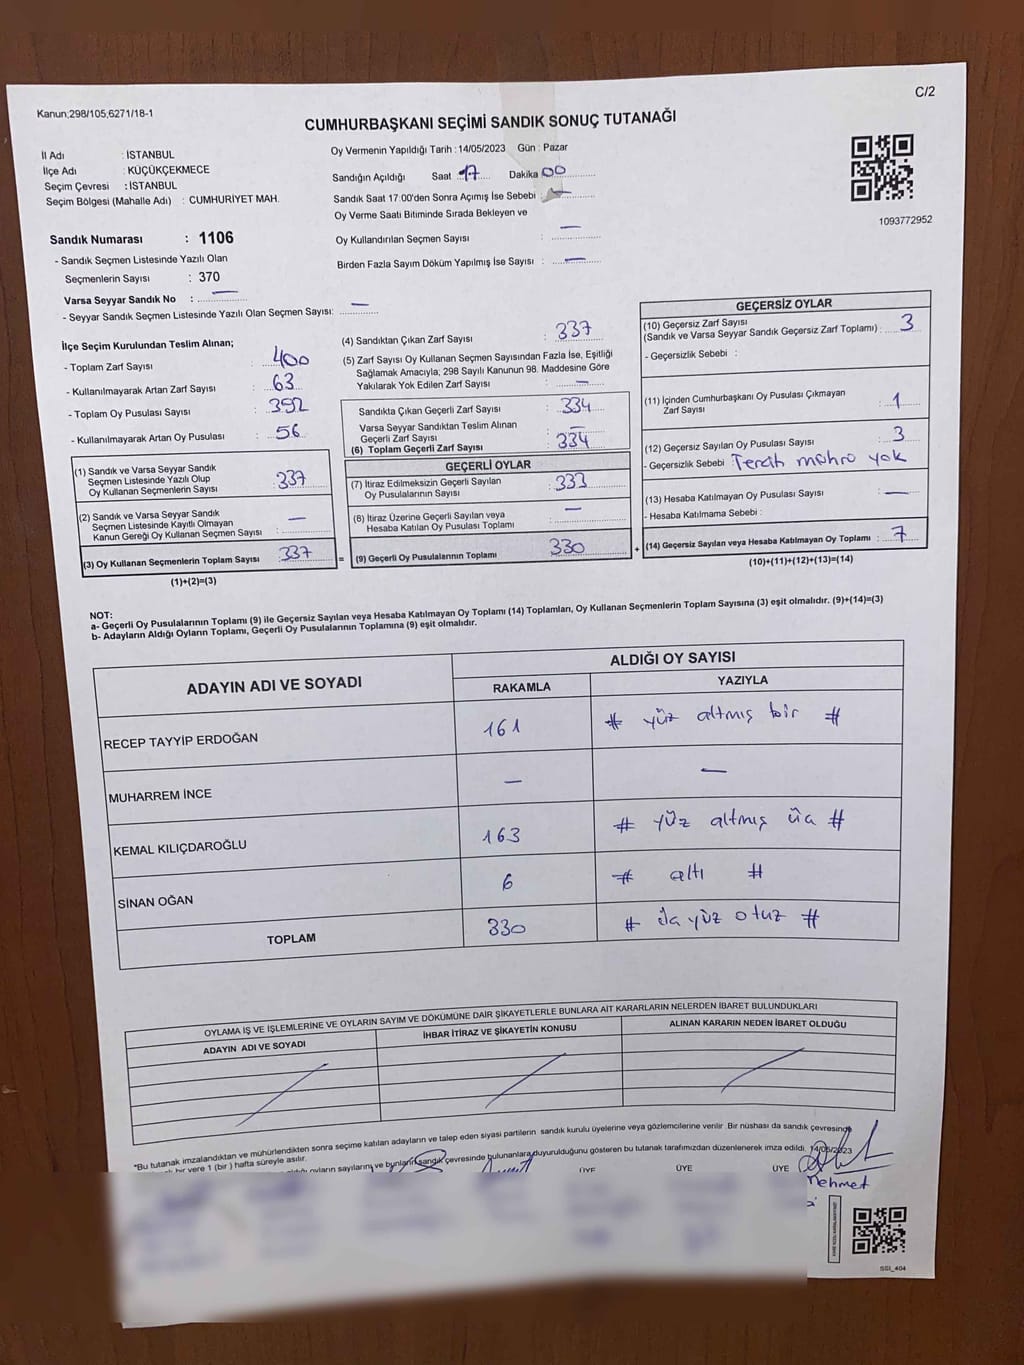 C/2
Kanun;298/105,6271/18-1
CUMHURBAŞKANI SEÇİMİ SANDIK SONUÇ TUTANAĞI
İl Adı : İSTANBUL
İlçe Adı : KÜÇÜKÇEKMECE
Seçim Çevresi : İSTANBUL
Seçim Bölgesi (Mahalle Adı) : CUMHURİYET MAH.
Sandık Numarası : 1106
- Sandık Seçmen Listesinde Yazılı Olan
Seçmenlerin Sayısı : 370
Varsa Seyyar Sandık No : —
- Seyyar Sandık Seçmen Listesinde Yazılı Olan Seçmen Sayısı: —
Oy Vermenin Yapıldığı Tarih :14/05/2023 Gün : Pazar
Sandığın Açıldığı Saat 17 Dakika 00
Sandık Saat 17:00'den Sonra Açımış İse Sebebi : —
Oy Verme Saati Bitiminde Sırada Bekleyen ve
Oy Kullandırılan Seçmen Sayısı : —
Birden Fazla Sayım Döküm Yapılmış İse Sayısı : —
1093772952
İlçe Seçim Kurulundan Teslim Alınan;
- Toplam Zarf Sayısı : 400
- Kullanılmayarak Artan Zarf Sayısı : 63
- Toplam Oy Pusulası Sayısı : 392
- Kullanılmayarak Artan Oy Pusulası : 56
(1) Sandık ve Varsa Seyyar Sandık
Seçmen Listesinde Yazılı Olup
Oy Kullanan Seçmenlerin Sayısı : 337
(2) Sandık ve Varsa Seyyar Sandık
Seçmen Listesinde Kayıtlı Olmayan
Kanun Gereği Oy Kullanan Seçmen Sayısı : —
(3) Oy Kullanan Seçmenlerin Toplam Sayısı : 337
(1)+(2)=(3)
(4) Sandıktan Çıkan Zarf Sayısı : 337
(5) Zarf Sayısı Oy Kullanan Seçmen Sayısından Fazla İse, Eşitliği
Sağlamak Amacıyla; 298 Sayılı Kanunun 98. Maddesine Göre
Yakılarak Yok Edilen Zarf Sayısı : —
Sandıkta Çıkan Geçerli Zarf Sayısı : 334
Varsa Seyyar Sandıktan Teslim Alınan
Geçerli Zarf Sayısı : —
(6) Toplam Geçerli Zarf Sayısı : 334
GEÇERLİ OYLAR
(7) İtiraz Edilmeksizin Geçerli Sayılan
Oy Pusulalarının Sayısı : 333
(8) İtiraz Üzerine Geçerli Sayılan veya
Hesaba Katılan Oy Pusulası Toplamı : —
= (9) Geçerli Oy Pusulalarının Toplamı 330
GEÇERSİZ OYLAR
(10) Geçersiz Zarf Sayısı
(Sandık ve Varsa Seyyar Sandık Geçersiz Zarf Toplamı) : 3
- Geçersizlik Sebebi :
(11) İçinden Cumhurbaşkanı Oy Pusulası Çıkmayan
Zarf Sayısı : 1
(12) Geçersiz Sayılan Oy Pusulası Sayısı : 3
- Geçersizlik Sebebi Tercih mührü yok
(13) Hesaba Katılmayan Oy Pusulası Sayısı : —
- Hesaba Katılmama Sebebi :
+ (14) Geçersiz Sayılan veya Hesaba Katılmayan Oy Toplamı : 7
(10)+(11)+(12)+(13)=(14)
NOT:
a- Geçerli Oy Pusulalarının Toplamı (9) ile Geçersiz Sayılan veya Hesaba Katılmayan Oy Toplamı (14) Toplamları, Oy Kullanan Seçmenlerin Toplam Sayısına (3) eşit olmalıdır. (9)+(14)=(3)
b- Adayların Aldığı Oyların Toplamı, Geçerli Oy Pusulalarının Toplamına (9) eşit olmalıdır.
ADAYIN ADI VE SOYADI
ALDIĞI OY SAYISI
RAKAMLA YAZIYLA
RECEP TAYYİP ERDOĞAN 161 # yüz altmış bir #
MUHARREM İNCE — —
KEMAL KILIÇDAROĞLU 163 # yüz altmış üç #
SİNAN OĞAN 6 # altı #
TOPLAM 330 # üç yüz otuz #
OYLAMA İŞ VE İŞLEMLERİNE VE OYLARIN SAYIM VE DÖKÜMÜNE DAİR ŞİKAYETLERLE BUNLARA AİT KARARLARIN NELERDEN İBARET BULUNDUKLARI
ADAYIN ADI VE SOYADI İHBAR İTİRAZ VE ŞİKAYETİN KONUSU ALINAN KARARIN NEDEN İBARET OLDUĞU
*Bu tutanak imzalandıktan ve mühürlendikten sonra seçime katılan adayların ve talep eden siyasi partilerin sandık kurulu üyelerine veya gözlemcilerine verilir. Bir nüshası da sandık çevresinde
bir yere 1 (bir) hafta süreyle asılır.
oyların sayılarını ve bunların sandık çevresinde bulunanlara duyurulduğunu gösteren bu tutanak tarafımızdan düzenlenerek imza edildi. 14/05/2023
ÜYE ÜYE ÜYE
Mehmet
SSI_404